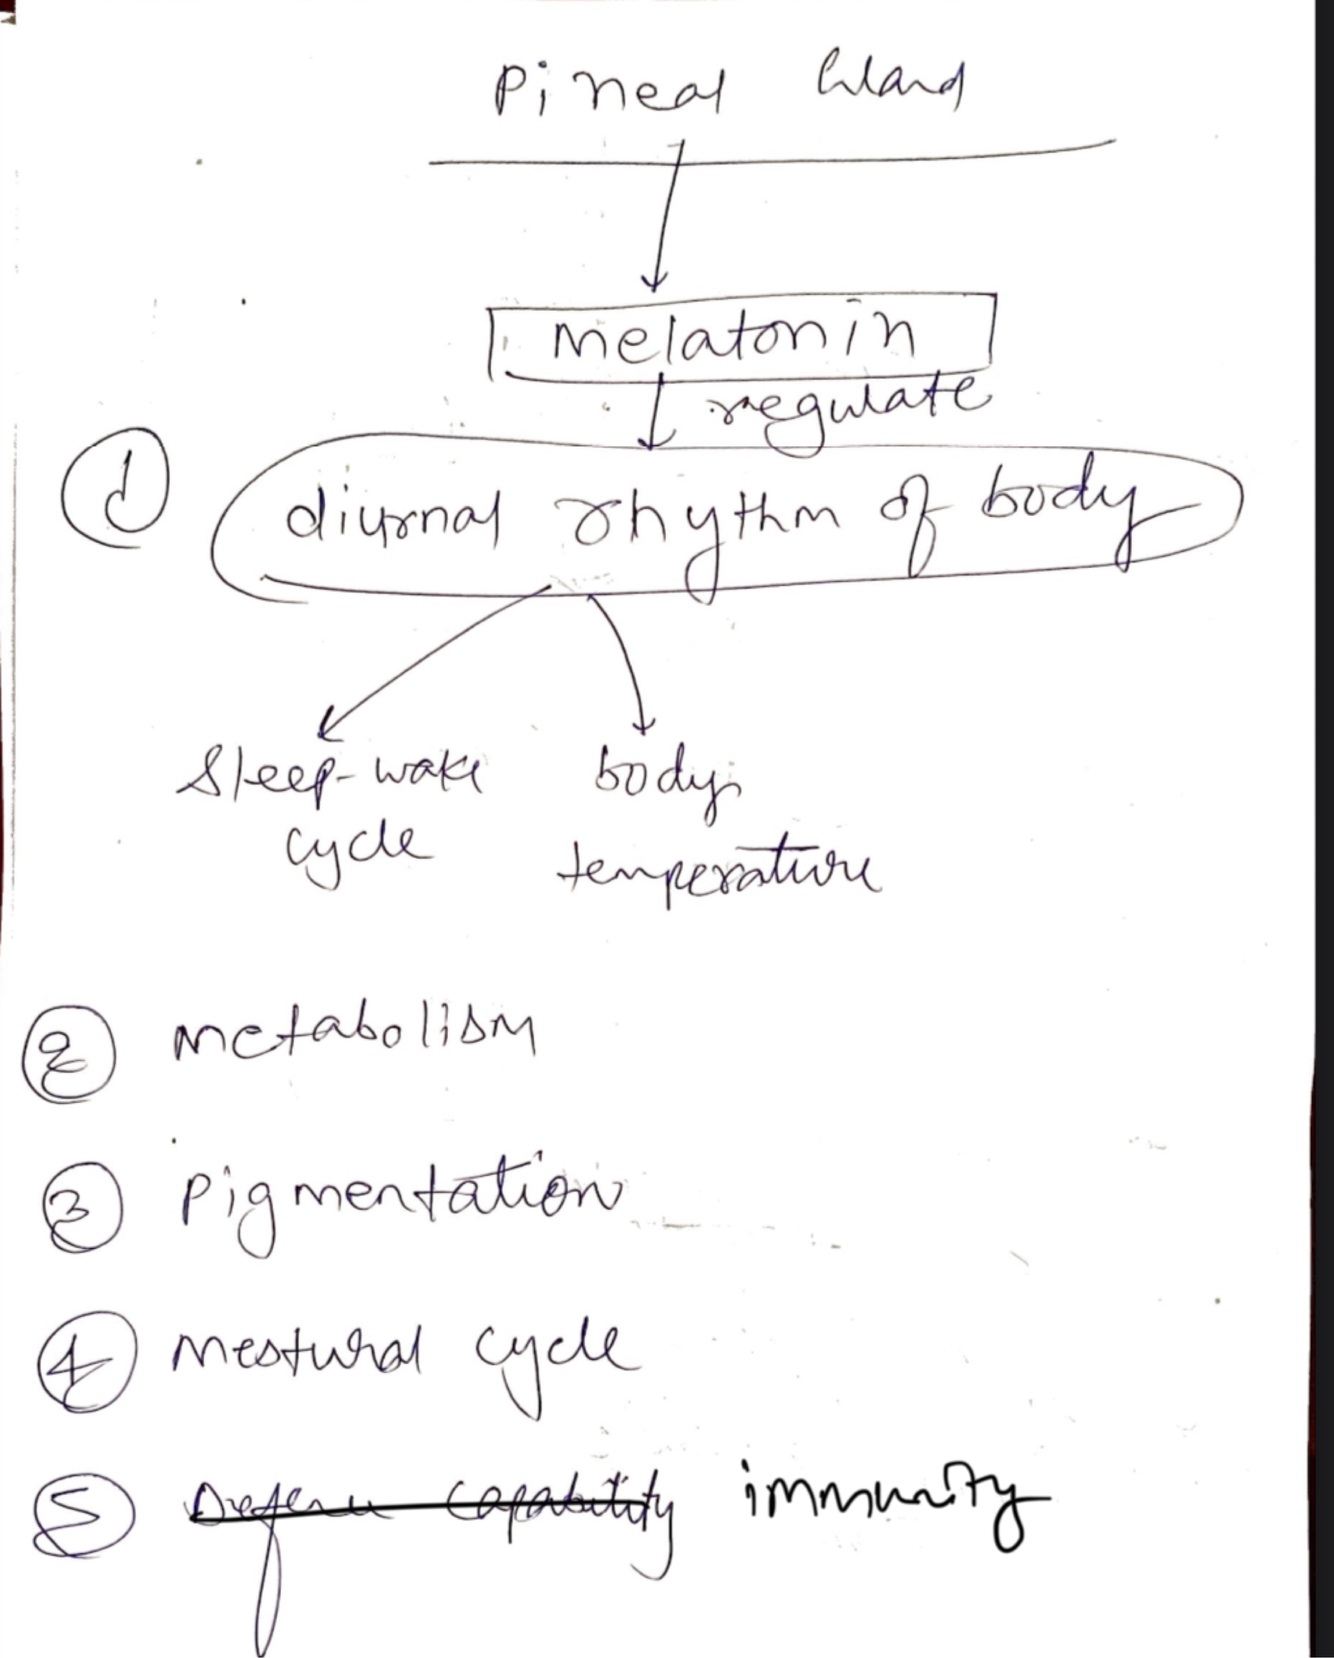 Pineal Gland
Melatonin
regulate
① diurnal rhythm of body
Sleep-wake body
cycle temperature
② Metabolism
③ Pigmentation
④ Mestural cycle
⑤ Defence capability immunity